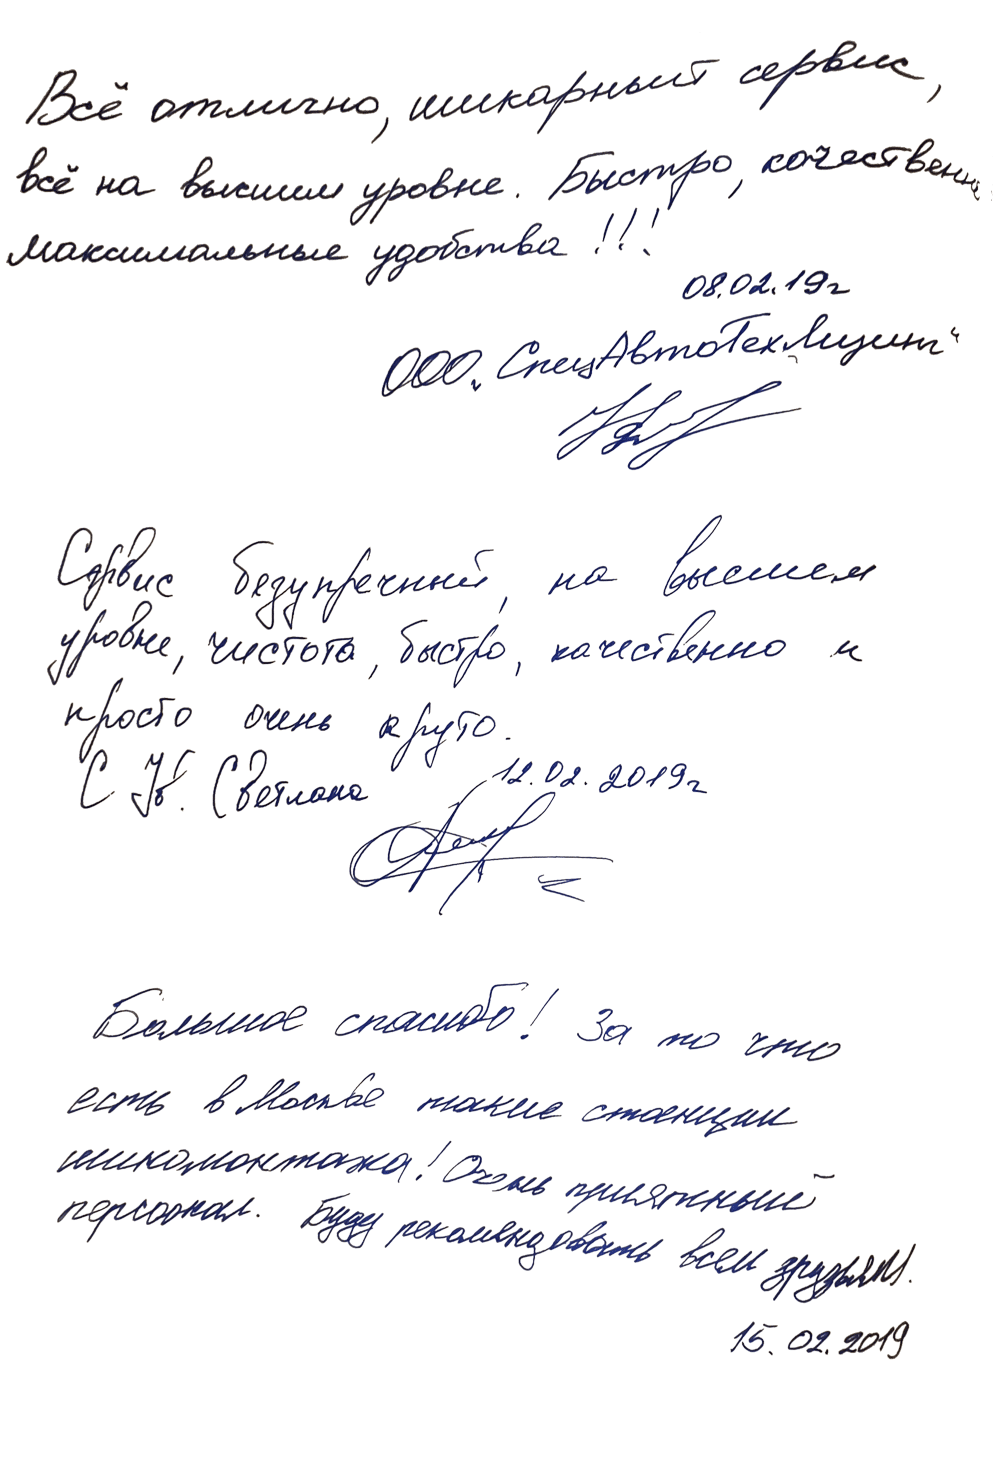 Всё отлично, шикарный сервис,
всё на высшем уровне. Быстро, качественн
максимальные удобства!!!
08.02.19г
ООО „СпецАвтоТехЛизинг“
Сервис безупречный, на высшем
уровне, чистота, быстро, качественно и
просто очень круто.
С Ув. Светлана 12.02.2019г
Большое спасибо! За то что
есть в Москве такие станции
шиномонтажа! Очень приятный
персонал. Буду рекомендовать всем друзьям.
15.02.2019